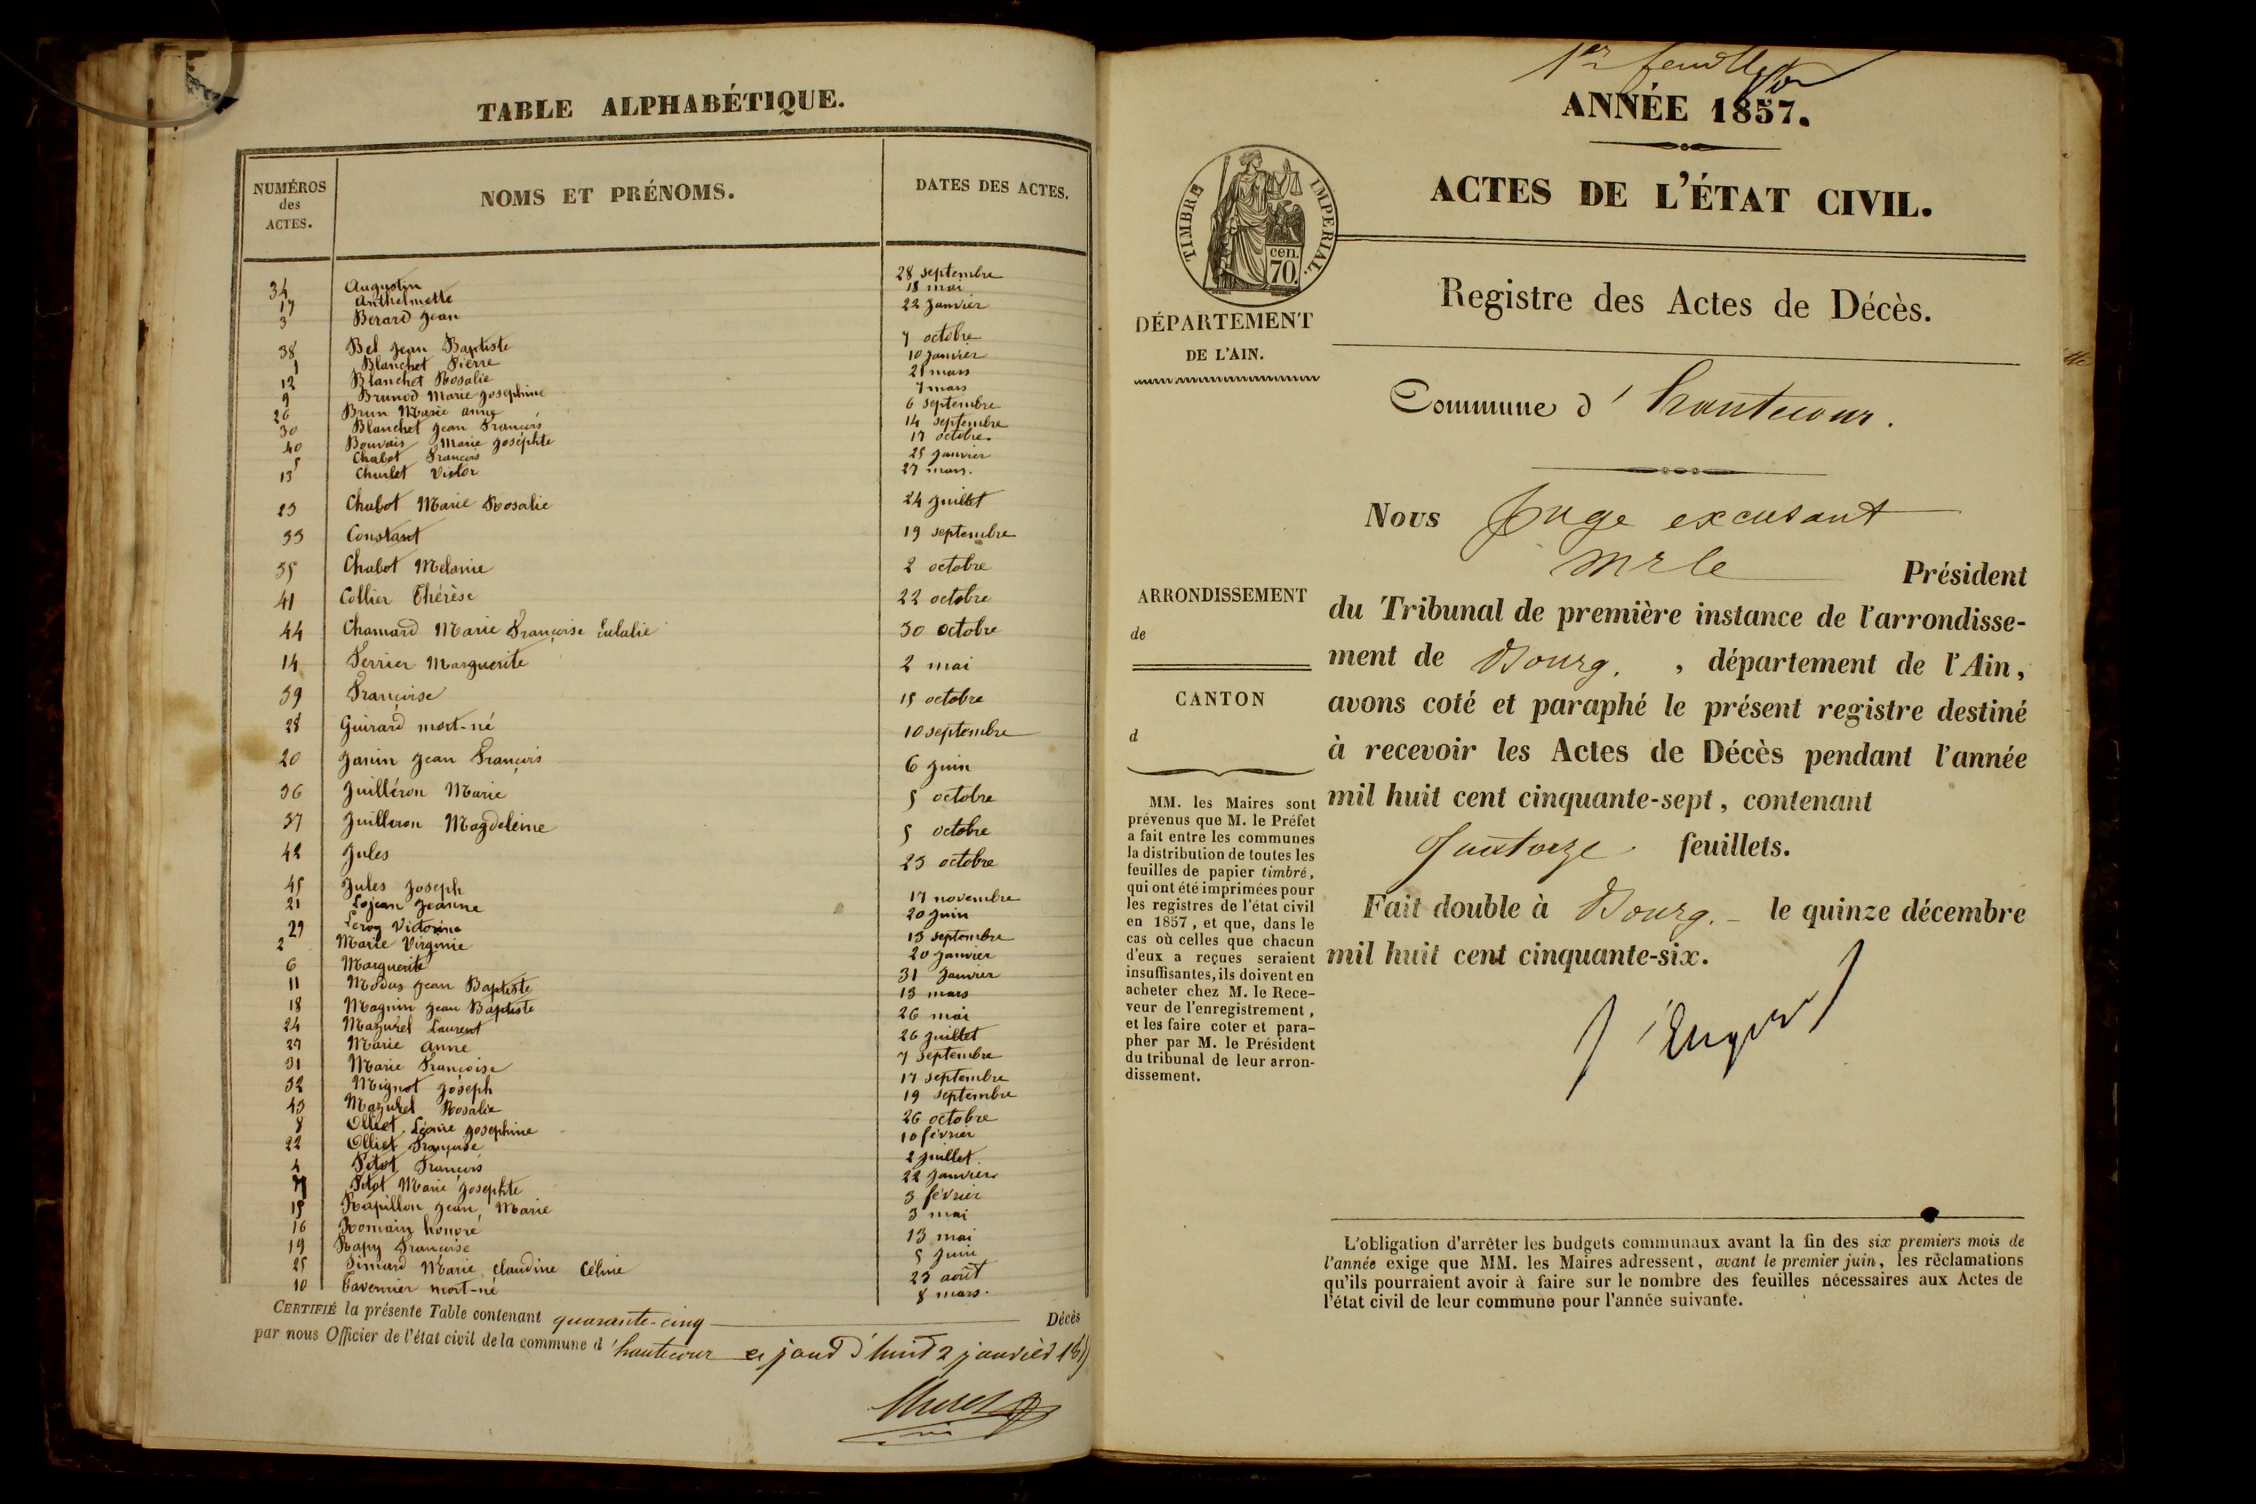 TABLE ALPHABÉTIQUE.
NUMÉROS des ACTES.
NOMS ET PRÉNOMS.
DATES DES ACTES.
34 Augustin 28 septembre
17 Anthelmette 18 mai
3 Berard Jean 22 Janvier
38 Bel Jean Baptiste 7 octobre
1 Blanchet Pierre 10 Janvier
12 Blanchet Rosalie 21 mars
9 Brunod Marie Josephine 7 mars
26 Brun Marie Anne 6 septembre
30 Blanchet Jean François 14 septembre
40 Bouvais Marie Joséphte 17 octobre
5 Chabot François 25 Janvier
13 Churlet Victor 27 mars.
23 Chabot Marie Rosalie 24 Juillet
33 Constant 19 septembre
35 Chabot Mélanie 2 octobre
41 Collier Thérèse 22 octobre
44 Chamard Marie Françoise Eulalie 30 octobre
14 Perrier Marguerite 2 mai
39 Françoise 15 octobre
28 Guirard mort-né 10 septembre
20 Janin Jean François 6 Juin
36 Juilléron Marie 5 octobre
37 Juilleron Magdeleine 5 octobre
42 Jules 23 octobre
45 Jules Joseph 17 novembre
21 Lojean Jeanne 20 Juin
29 Leroy Victorine 13 septembre
2 Marie Virginie 20 Janvier
6 Marguerite 31 Janvier
11 Modas Jean Baptiste 13 mars
18 Magnin Jean Baptiste 26 mai
24 Mazuret Laurent 26 Juillet
27 Marie Anne 7 septembre
31 Marie Françoise 17 septembre
32 Mignot Joseph 19 septembre
43 Mazuret Rosalie 26 octobre
8 Olliet Josephine 10 février
22 Olliet Françoise 2 Juillet
4 Pitot François 22 Janvier
7 Pitot Marie Josephte 3 février
15 Rapillon Jean Marie 3 mai
16 Romain honoré 13 mai
19 Rapy Françoise 5 Juin
25 Simard Marie Claudine Céline 23 août
10 Tavernier mort-né 8 mars.
CERTIFIÉ la présente Table contenant quarante-cinq Décès
par nous Officier de l'état civil de la commune d'hautecour
1er feuillet
ANNÉE 1857.
ACTES DE L'ÉTAT CIVIL.
TIMBRE IMPERIAL.
cen.
70.
DÉPARTEMENT
DE L'AIN.
Registre des Actes de Décès.
Commune d'hautecour.
Nous Juge excusant
Mr le Président
ARRONDISSEMENT
de
CANTON
d
du Tribunal de première instance de l'arrondisse-
ment de Bourg. , département de l'Ain,
avons coté et paraphé le présent registre destiné
à recevoir les Actes de Décès pendant l'année
mil huit cent cinquante-sept, contenant
quatorze feuillets.
Fait double à Bourg. le quinze décembre
mil huit cent cinquante-six.
MM. les Maires sont
prévenus que M. le Préfet
a fait entre les communes
la distribution de toutes les
feuilles de papier timbré,
qui ont été imprimées pour
les registres de l'état civil
en 1857, et que, dans le
cas où celles que chacun
d'eux a reçues seraient
insuffisantes, ils doivent en
acheter chez M. le Rece-
veur de l'enregistrement,
et les faire coter et para-
pher par M. le Président
du tribunal de leur arron-
dissement.
L'obligation d'arrêter les budgets communaux avant la fin des six premiers mois de
l'année exige que MM. les Maires adressent, avant le premier juin, les réclamations
qu'ils pourraient avoir à faire sur le nombre des feuilles nécessaires aux Actes de
l'état civil de leur commune pour l'année suivante.